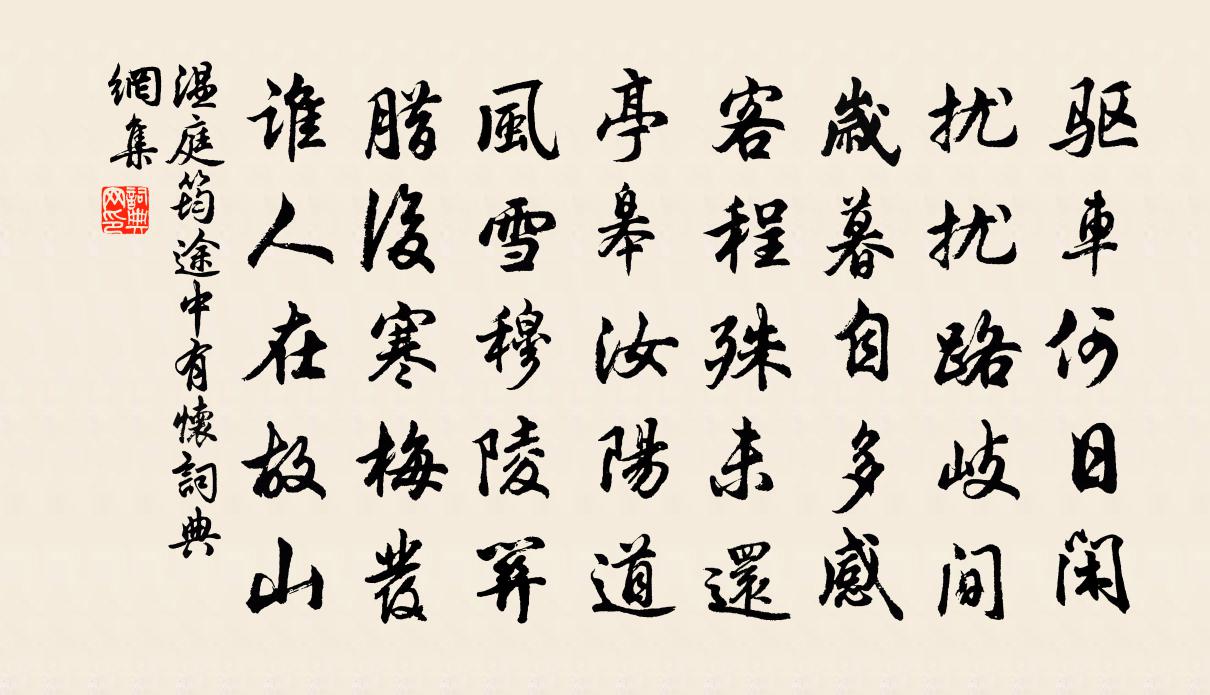 驱車何日闲
扰扰路岐间
歲暮自多感
客程殊未還
亭皋汝陽道
風雪穆陵關
腊後寒梅發
谁人在故山
温庭筠途中有懷詞典
網集
詞典
网印